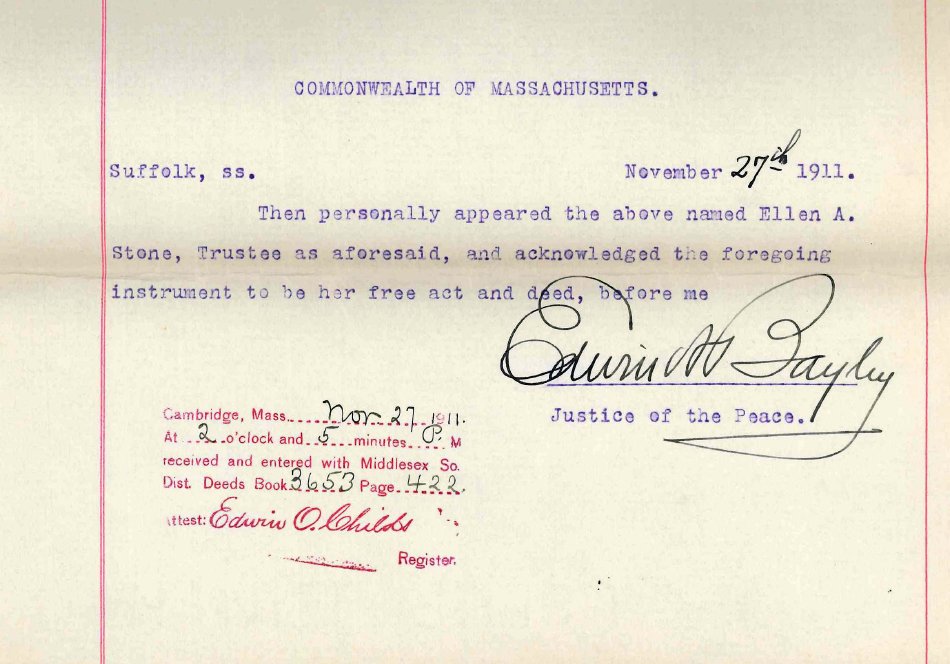 COMMONWEALTH OF MASSACHUSETTS.
Suffolk, ss. November 27th 1911.
Then personally appeared the above named Ellen A.
Stone, Trustee as aforesaid, and acknowledged the foregoing
instrument to be her free act and deed, before me
Edwin H Bayley
Justice of the Peace.
Cambridge, Mass. Nov 27 1911.
At 2 o'clock and 5 minutes P. M
received and entered with Middlesex So.
Dist. Deeds Book 3653 Page 422.
Attest: Edwin O. Childs
Register.